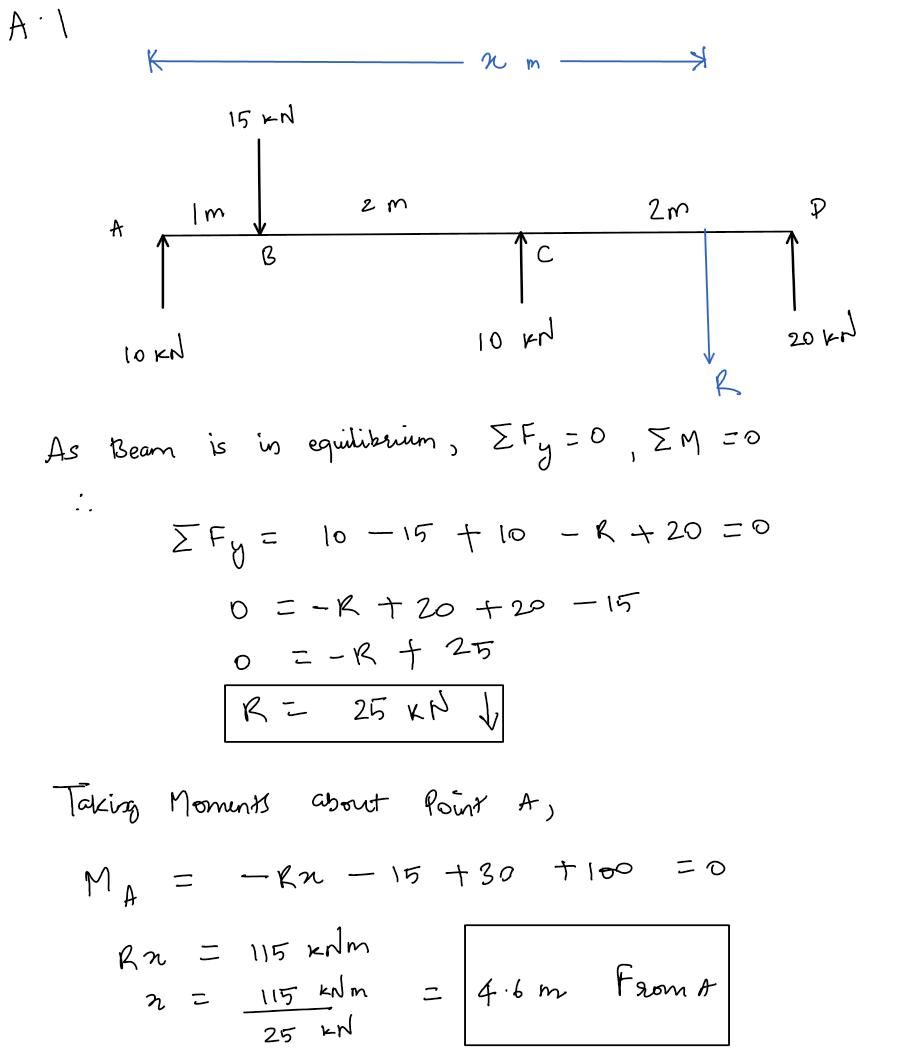 A.1
x m
15 kN
1m 2 m 2m D
A
B C
10 kN 10 kN 20 kN
R
As Beam is in equilibrium, ΣFy = 0, ΣM = 0
∴
ΣFy = 10 - 15 + 10 - R + 20 = 0
0 = -R + 20 + 20 - 15
0 = -R + 25
R = 25 kN ↓
Taking Moments about Point A,
MA = -Rx - 15 + 30 + 100 = 0
Rx = 115 kNm
x = 115 kNm / 25 kN = 4.6 m From A